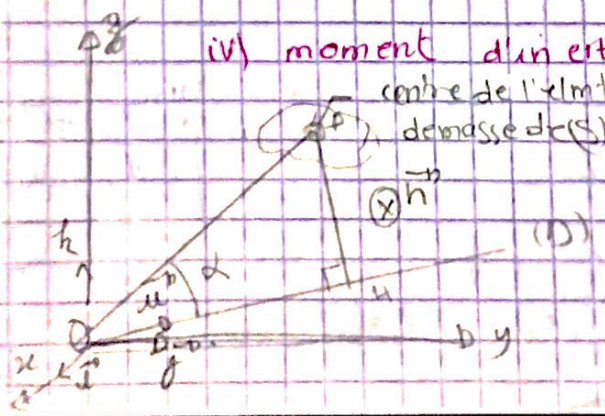 z
iv) moment d'inert
centre de l'elmt
P
de masse de (S)
n
h
(D)
α
u
H
O
y
x
i
j